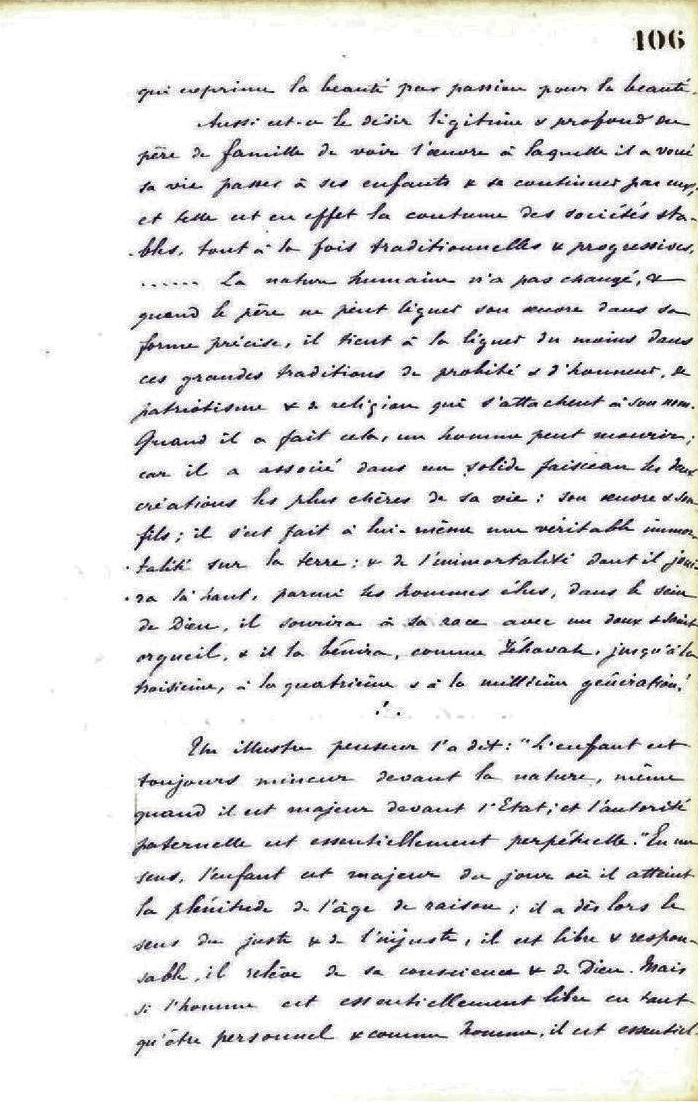 106
qui exprime la beauté par passion pour la beauté.
Aussi est-ce le désir légitime & profond du
père de famille de voir l'œuvre à laquelle il a voué
sa vie passer à ses enfants & se continuer par eux,
et telle est en effet la coutume des sociétés sta-
bles, tout à la fois traditionnelles & progressives,
...... La nature humaine n'a pas changé, &
quand le père ne peut léguer son œuvre dans sa
forme précise, il tient à la léguer du moins dans
ces grandes traditions de probité & d'honneur, de
patriotisme & de religion qui s'attachent à son nom.
Quand il a fait cela, un homme peut mourir;
car il a associé dans un solide faisceau les deux
créations les plus chères de sa vie : son œuvre & son
fils; il s'est fait à lui-même une véritable immor-
talité sur la terre; & de l'immortalité dont il joui-
ra là haut, parmi les hommes élus, dans le sein
de Dieu, il sourira à sa race avec un doux & saint
orgueil, & il la bénira, comme Jéhovah, jusqu'à la
troisième, à la quatrième & à la millième génération!
Un illustre penseur l'a dit : "L'enfant est
toujours mineur devant la nature, même
quand il est majeur devant l'Etat; et l'autorité
paternelle est essentiellement perpétuelle." En un
sens, l'enfant est majeur du jour où il atteint
la plénitude de l'âge de raison; il a dès lors le
sens du juste & de l'injuste, il est libre & respon-
sable, il relève de sa conscience & de Dieu. Mais
si l'homme est essentiellement libre en tant
qu'être personnel & comme homme, il est essentiel-